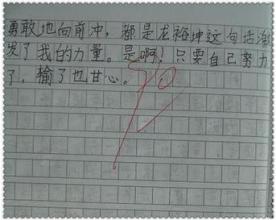 勇敢地向前冲，都是龙裕坤这句话激
发了我的力量。是啊！只要自己努力
了，输了也甘心。